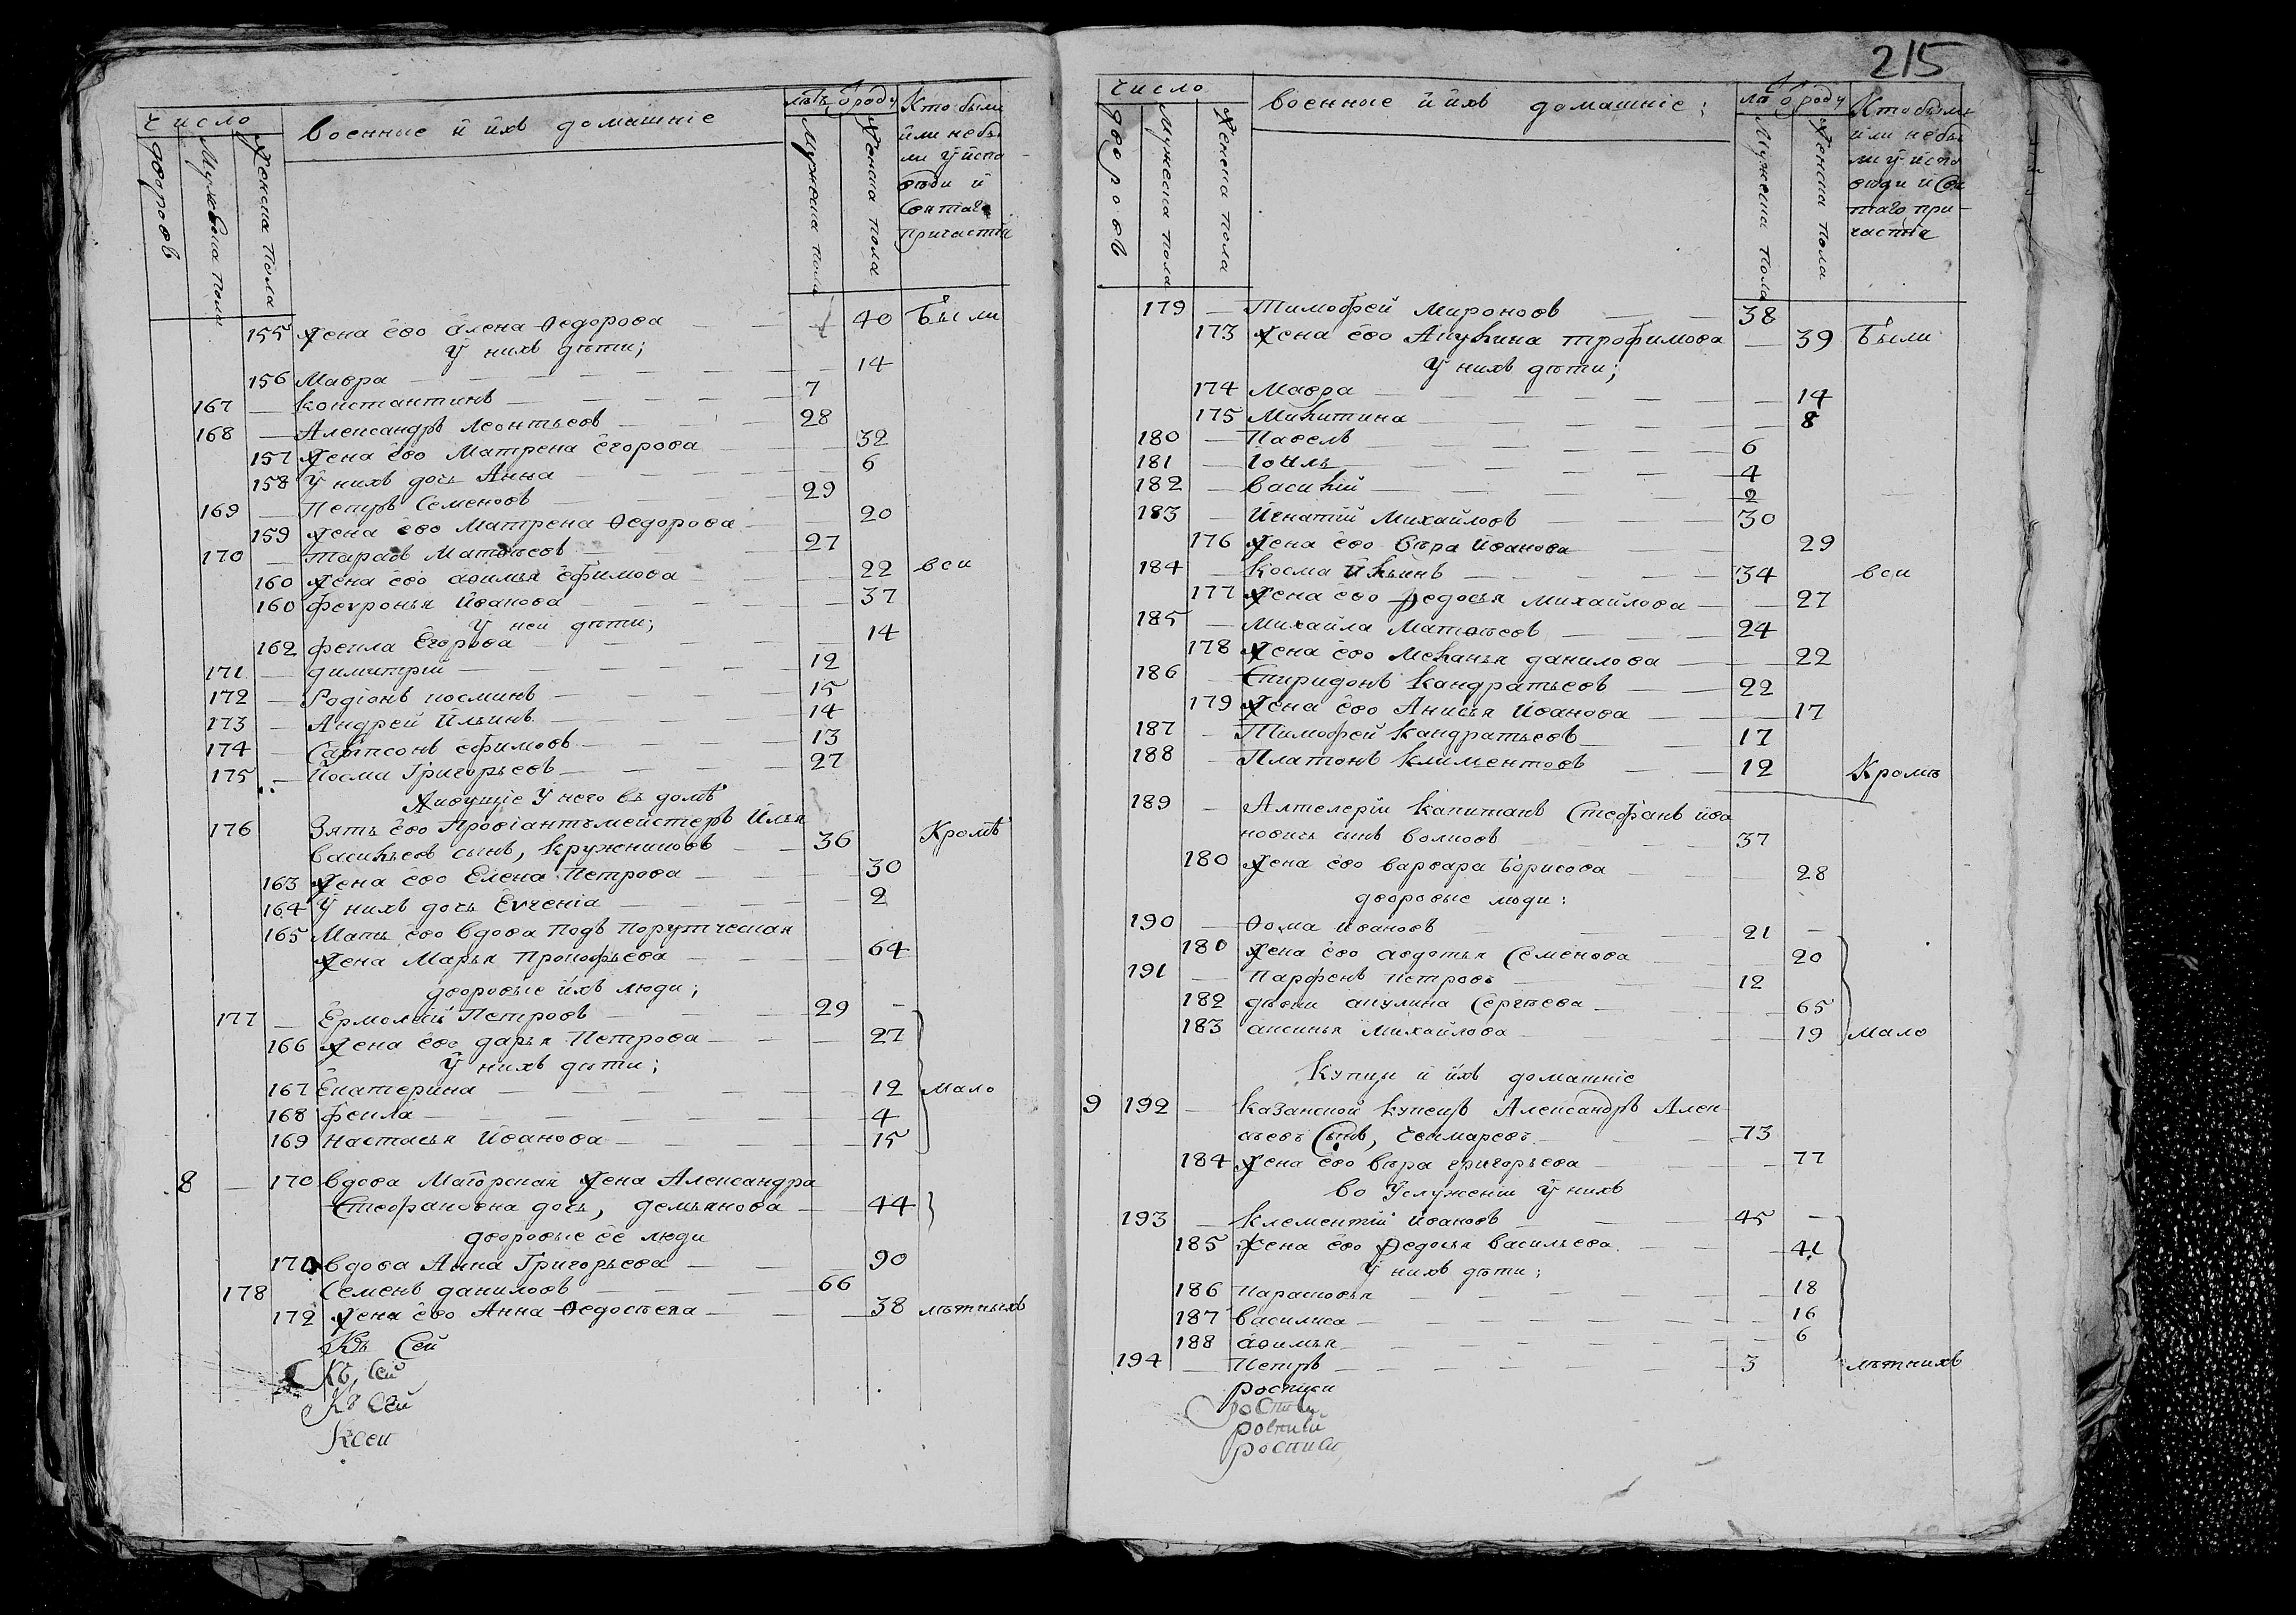 число
дворовъ
Мужеска пола
Женска пола
военные и ихъ домашніе
лѣтъ ѿ роду
Мужеска пола
Женска пола
Кто были
или небы
ли у испо
вѣди и
Святаго
причастія
155 Жена ево Алена Ѳедорова — 40 Были
У нихъ дѣти;
156 Мавра — 14
167 — Константинъ — 7
168 — Александръ Леонтьевъ — 28
157 Жена ево Матрена Егорова — 32
158 У нихъ дочь Анна — 6
169 — Петръ Семеновъ — 29
159 Жена ево Матрена Ѳедорова — 20
170 — Тарасъ Матвѣевъ — 27
160 Жена ево Авимья Ефимова — 22 вси
160 Февронья Иванова — 37
У ней дѣти;
162 Фекла Егорова — 14
171 — Димитрій — 12
172 — Родіонъ Косминъ — 15
173 — Андрей Ильинъ — 14
174 — Сампсонъ Ефимовъ — 13
175 — Косма Григорьевъ — 27
Живущіе У него въ домѣ
176 Зять ево Провіантъмейстеръ Илья
Васильевъ сынъ, Кружениковъ — 36 Кромѣ
163 Жена ево Елена Петрова — 30
164 У нихъ дочь Евгенія — 2
165 Мать ево вдова Подъ Порутческая
Жена Марья Прокофьева — 64
дворовые ихъ люди;
177 — Ермолай Петровъ — 29 —
166 Жена ево дарья Петрова — 27
У нихъ дѣти;
167 Екатерина — 12 мало
168 Фекла — 4
169 Настасья Иванова — 15
8 — 170 вдова Маіорская Жена Александра
Стефановна дочь, демьянова — 44
дворовые ее люди
171 вдова Анна Григорьева — 90
178 Семенъ даниловъ — 66
172 Жена ево Анна Ѳедосѣева — 38 лѣтныхъ
Къ Сей
Къ Сей
Къ Сей
Ксеи
215
число
дворовъ
Мужеска пола
Женска пола
военные и ихъ домашніе;
лѣ ѿ роду
Мужеска пола
Женска пола
Кто были
или небы
ли у испо
вѣди и Свя
таго при
частія
179 — Тимофей Мироновъ — 38
173 Жена ево Акулина трофимова — 39 Были
У нихъ дѣти;
174 Мавра — 14
175 Микитина — 8
180 — Павелъ — 6
181 — Іоиль — 4
182 — Василій — 2
183 — Игнатій Михайловъ — 30
176 Жена ево Вѣра Иванова — 29
184 — Косма Ильинъ — 34 вси
177 Жена ево Федосья Михайлова — 27
185 — Михайла Матвѣевъ — 24
178 Жена ево Меланья данилова — 22
186 — Спиридонъ Кандратьевъ — 22
179 Жена ево Анисья Иванова — 17
187 — Тимофей Кандратьевъ — 17
188 — Платонъ Климентовъ — 12 Кромѣ
189 — Алтелеріи Капитанъ Стефанъ Ива
новичь сынъ Волковъ — 37
180 Жена ево варвара Борисова — 28
дворовые люди:
190 — Ѳома Ивановъ — 21 —
180 Жена ево авдотья Семенова — 20
191 — Парфенъ Петровъ — 12
182 дѣвки акулина Сергѣева — 65
183 аксинья Михайлова — 19 мало
Купцы и ихъ домашніе
9 192 — Казанской Купецъ Александръ Алек
сѣевъ Сынъ, — 73
184 Жена ево вѣра григорьева — 77
во Услуженіи У нихъ
193 — Клементій Ивановъ — 45 —
185 Жена ево Федосья васильева — 41
У нихъ дѣти;
186 Парасковья — 18
187 Василиса — 16
188 авимья — 6
194 — Петръ — 3 лѣтнихъ
росписи
росписи
росписи
росписи